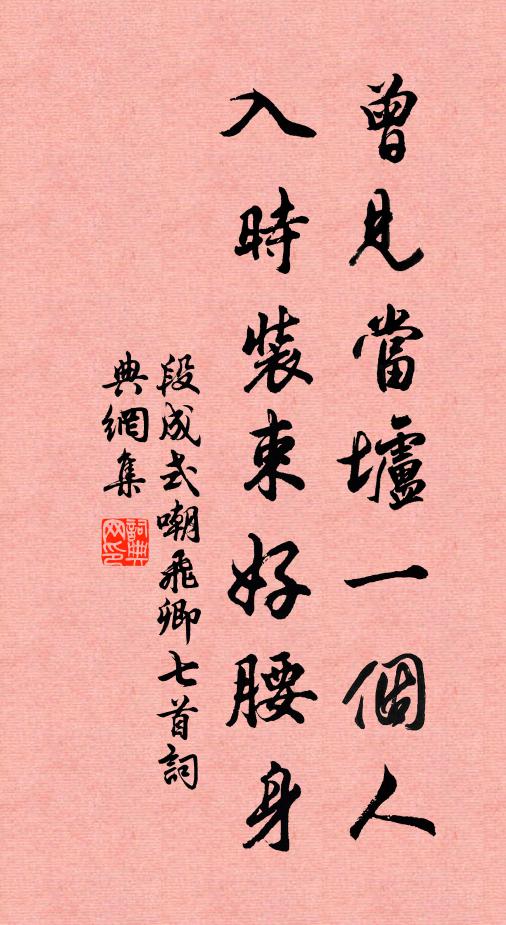 曾見當壚一個人
入時裝束好腰身
段成式嘲飛卿七首詞
典網集
詞典
网印